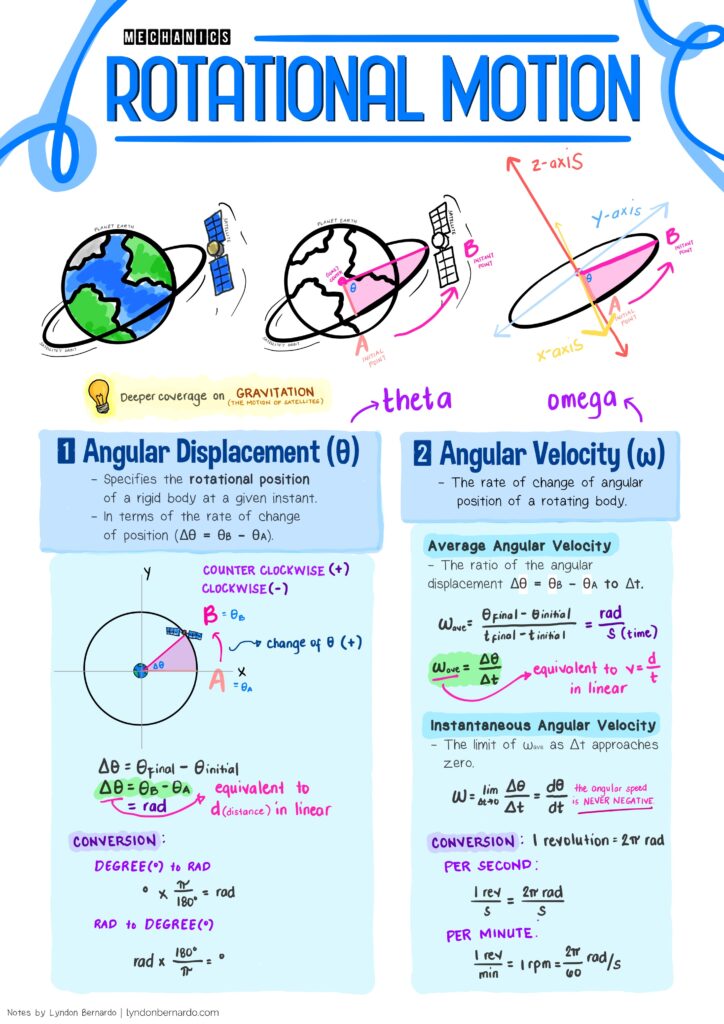 MECHANICS
ROTATIONAL MOTION
PLANET EARTH
SATELLITE
SATELLITE'S ORBIT
PLANET EARTH
SATELLITE
EARTH CENTER
θ
B
INSTANT
POINT
A
INITIAL
POINT
SATELLITE'S ORBIT
z-axis
y-axis
B
INSTANT
POINT
θ
A
INITIAL
POINT
x-axis
Deeper coverage on GRAVITATION
(THE MOTION OF SATELLITES)
theta
omega
1 Angular Displacement (θ)
- Specifies the rotational position
of a rigid body at a given instant.
- In terms of the rate of change
of position (Δθ = θB - θA).
y
COUNTER CLOCKWISE (+)
CLOCKWISE (-)
B = θB
change of θ (+)
Δθ
x
A = θA
Δθ = θfinal - θinitial
Δθ = θB - θA
= rad
equivalent to
d(distance) in linear
CONVERSION:
DEGREE(°) to RAD
° x π/180° = rad
RAD to DEGREE(°)
rad x 180°/π = °
2 Angular Velocity (ω)
- The rate of change of angular
position of a rotating body.
Average Angular Velocity
- The ratio of the angular
displacement Δθ = θB - θA to Δt.
ωave = θfinal - θinitial / tfinal - tinitial = rad / s (time)
ωave = Δθ/Δt
equivalent to v = d/t
in linear
Instantaneous Angular Velocity
- The limit of ωave as Δt approaches
zero.
ω = lim Δt→0 Δθ/Δt = dθ/dt
the angular speed
is NEVER NEGATIVE.
CONVERSION: 1 revolution = 2π rad
PER SECOND:
1 rev/s = 2π rad/s
PER MINUTE:
1 rev/min = 1 rpm = 2π/60 rad/s
Notes by Lyndon Bernardo | lyndonbernardo.com